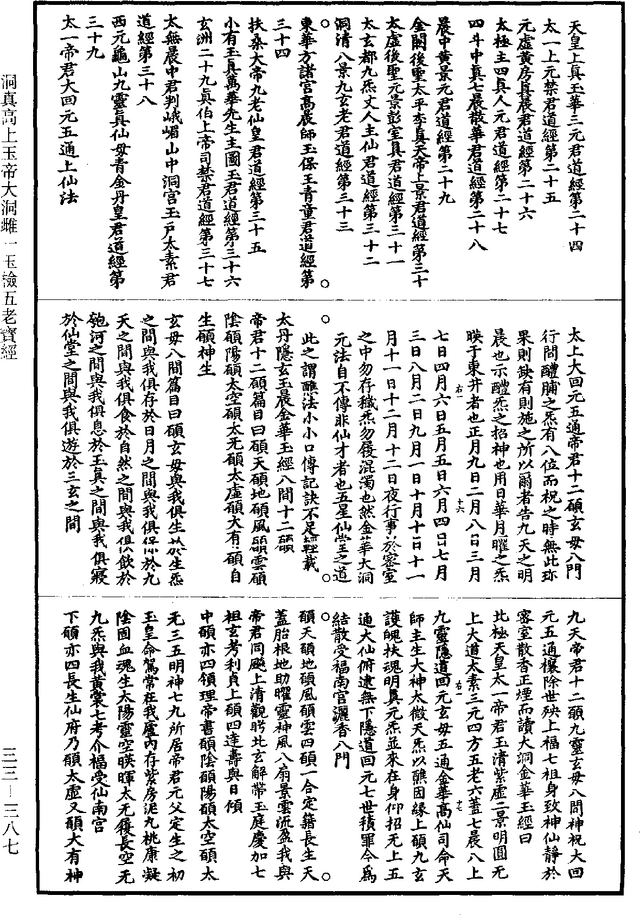 天皇上真玉華三元君道經第二十四
太一上元禁君道經第二十五
元虛黃房真晨君道經第二十六
太極主四真人元君道經第二十七
四斗中真七晨散華君道經第二十八
晨中黃景元君道經第二十九
金闕後聖太平李真天帝上景君道經第三十
太虛後聖元景彭室真君道經第三十一
太玄都九炁丈人主仙君道經第三十二
洞清八景九玄老君道經第三十三
東華方諸宮高晨師玉保王青童君道經第
三十四
扶桑大帝九老仙皇君道經第三十五
小有玉真萬華先生主圖玉君道經第三十六
玄洲二十九真伯上帝司禁君道經第三十七
太無晨中君判峨嵋山中洞宮玉戶太素君
道經第三十八
西元龜山九靈真仙母青金丹皇君道經第
三十九
太一帝君大回元五通上仙法
太上大回元五通帝君十二願玄母八門
行間醴脯之炁有八位而祝之時無此珎
果則缺有則施之所以爾者告九天之明
晨也示醴炁之招神也用日華月曜之炁
暎于東井者也正月九日二月八日三月
七日四月六日五月五日六月四日七月
三日八月二日九月一日十月十日十一
月十一日十二月十二日夜行事於密室
之中勿存穢炁勿履混濁也然金華大洞
元法自不傳非仙才者也五星仙堂之道
此之謂醮法小小口傳記訣不足輕載
太丹隱玄玉晨金華玉經八間十二願
帝君十二願篇目曰願天願地願風願雲願
陰願陽願太空願太无願太虛願大有願自
生願神生
玄母八間篇目曰願玄母與我俱生於生炁
之間與我俱存於日月之間與我俱保於九
天之間與我俱食於自然之間與我俱飲於
匏河之間與我俱息於玉真之間與我俱寢
於仙堂之間與我俱遊於三玄之間
九天帝君十二願九靈玄母八間神祝大回
元五通攘除世殃上福七祖身致神仙靜於
密室散香正煙而讀大洞金華玉經曰
北極天皇太一帝君玉清紫虛二景明圓无
上大道太素三元四方五老六蓋七晨八上
九靈隱道回元玄母五通金華高仙司命天
師主生大神太微天炁以醮因緣上願九玄
護魄扶魂明真元炁並來在身仰招元上五
通大仙俯逮無下隱道回元七世積罪今為
結散受福南宮灑香八門
願天願地願風願雲四願一合定籍長生天
蓋胎根地助曜靈神風八扇景雲流盈我與
帝君同飈上清觀眄北玄解帶玉庭慶加七
祖玄考利貞上願四達壽與日傾
中願亦四領理帝書願陰願陽願太空願太
无三五明神七九所居帝君元父定生之初
玉皇命駕常在我廬內存紫房泥九桃康凝
陰固血魂生太陽靈空暎暉太无復長空无
九炁與我黃裳七考介福受仙南宮
下願亦四長生仙府乃願太虛又願大有神
洞真高上玉帝大洞雌一玉檢五老寶經
三三—三八七